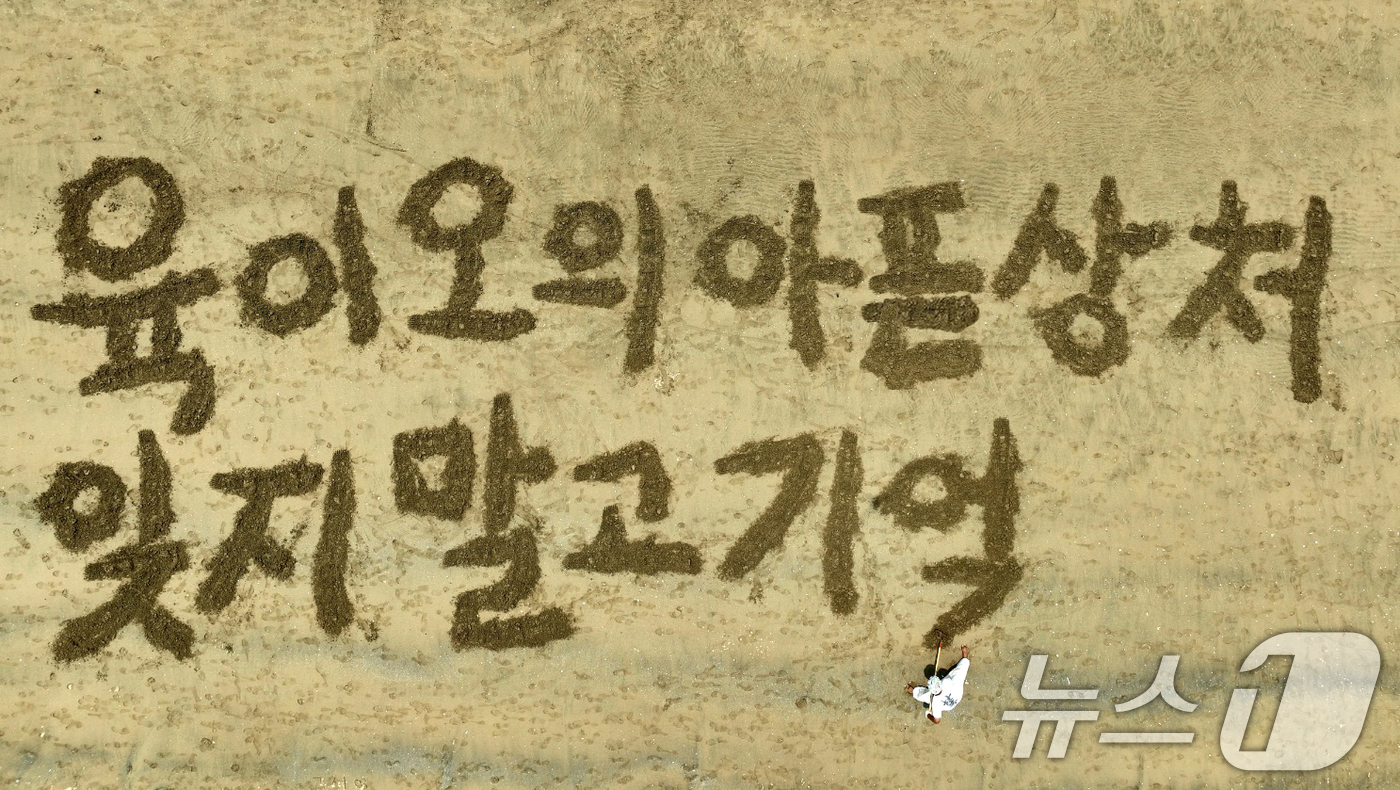 육이오의 아픔 상처
잊지 말고 기억
뉴스1